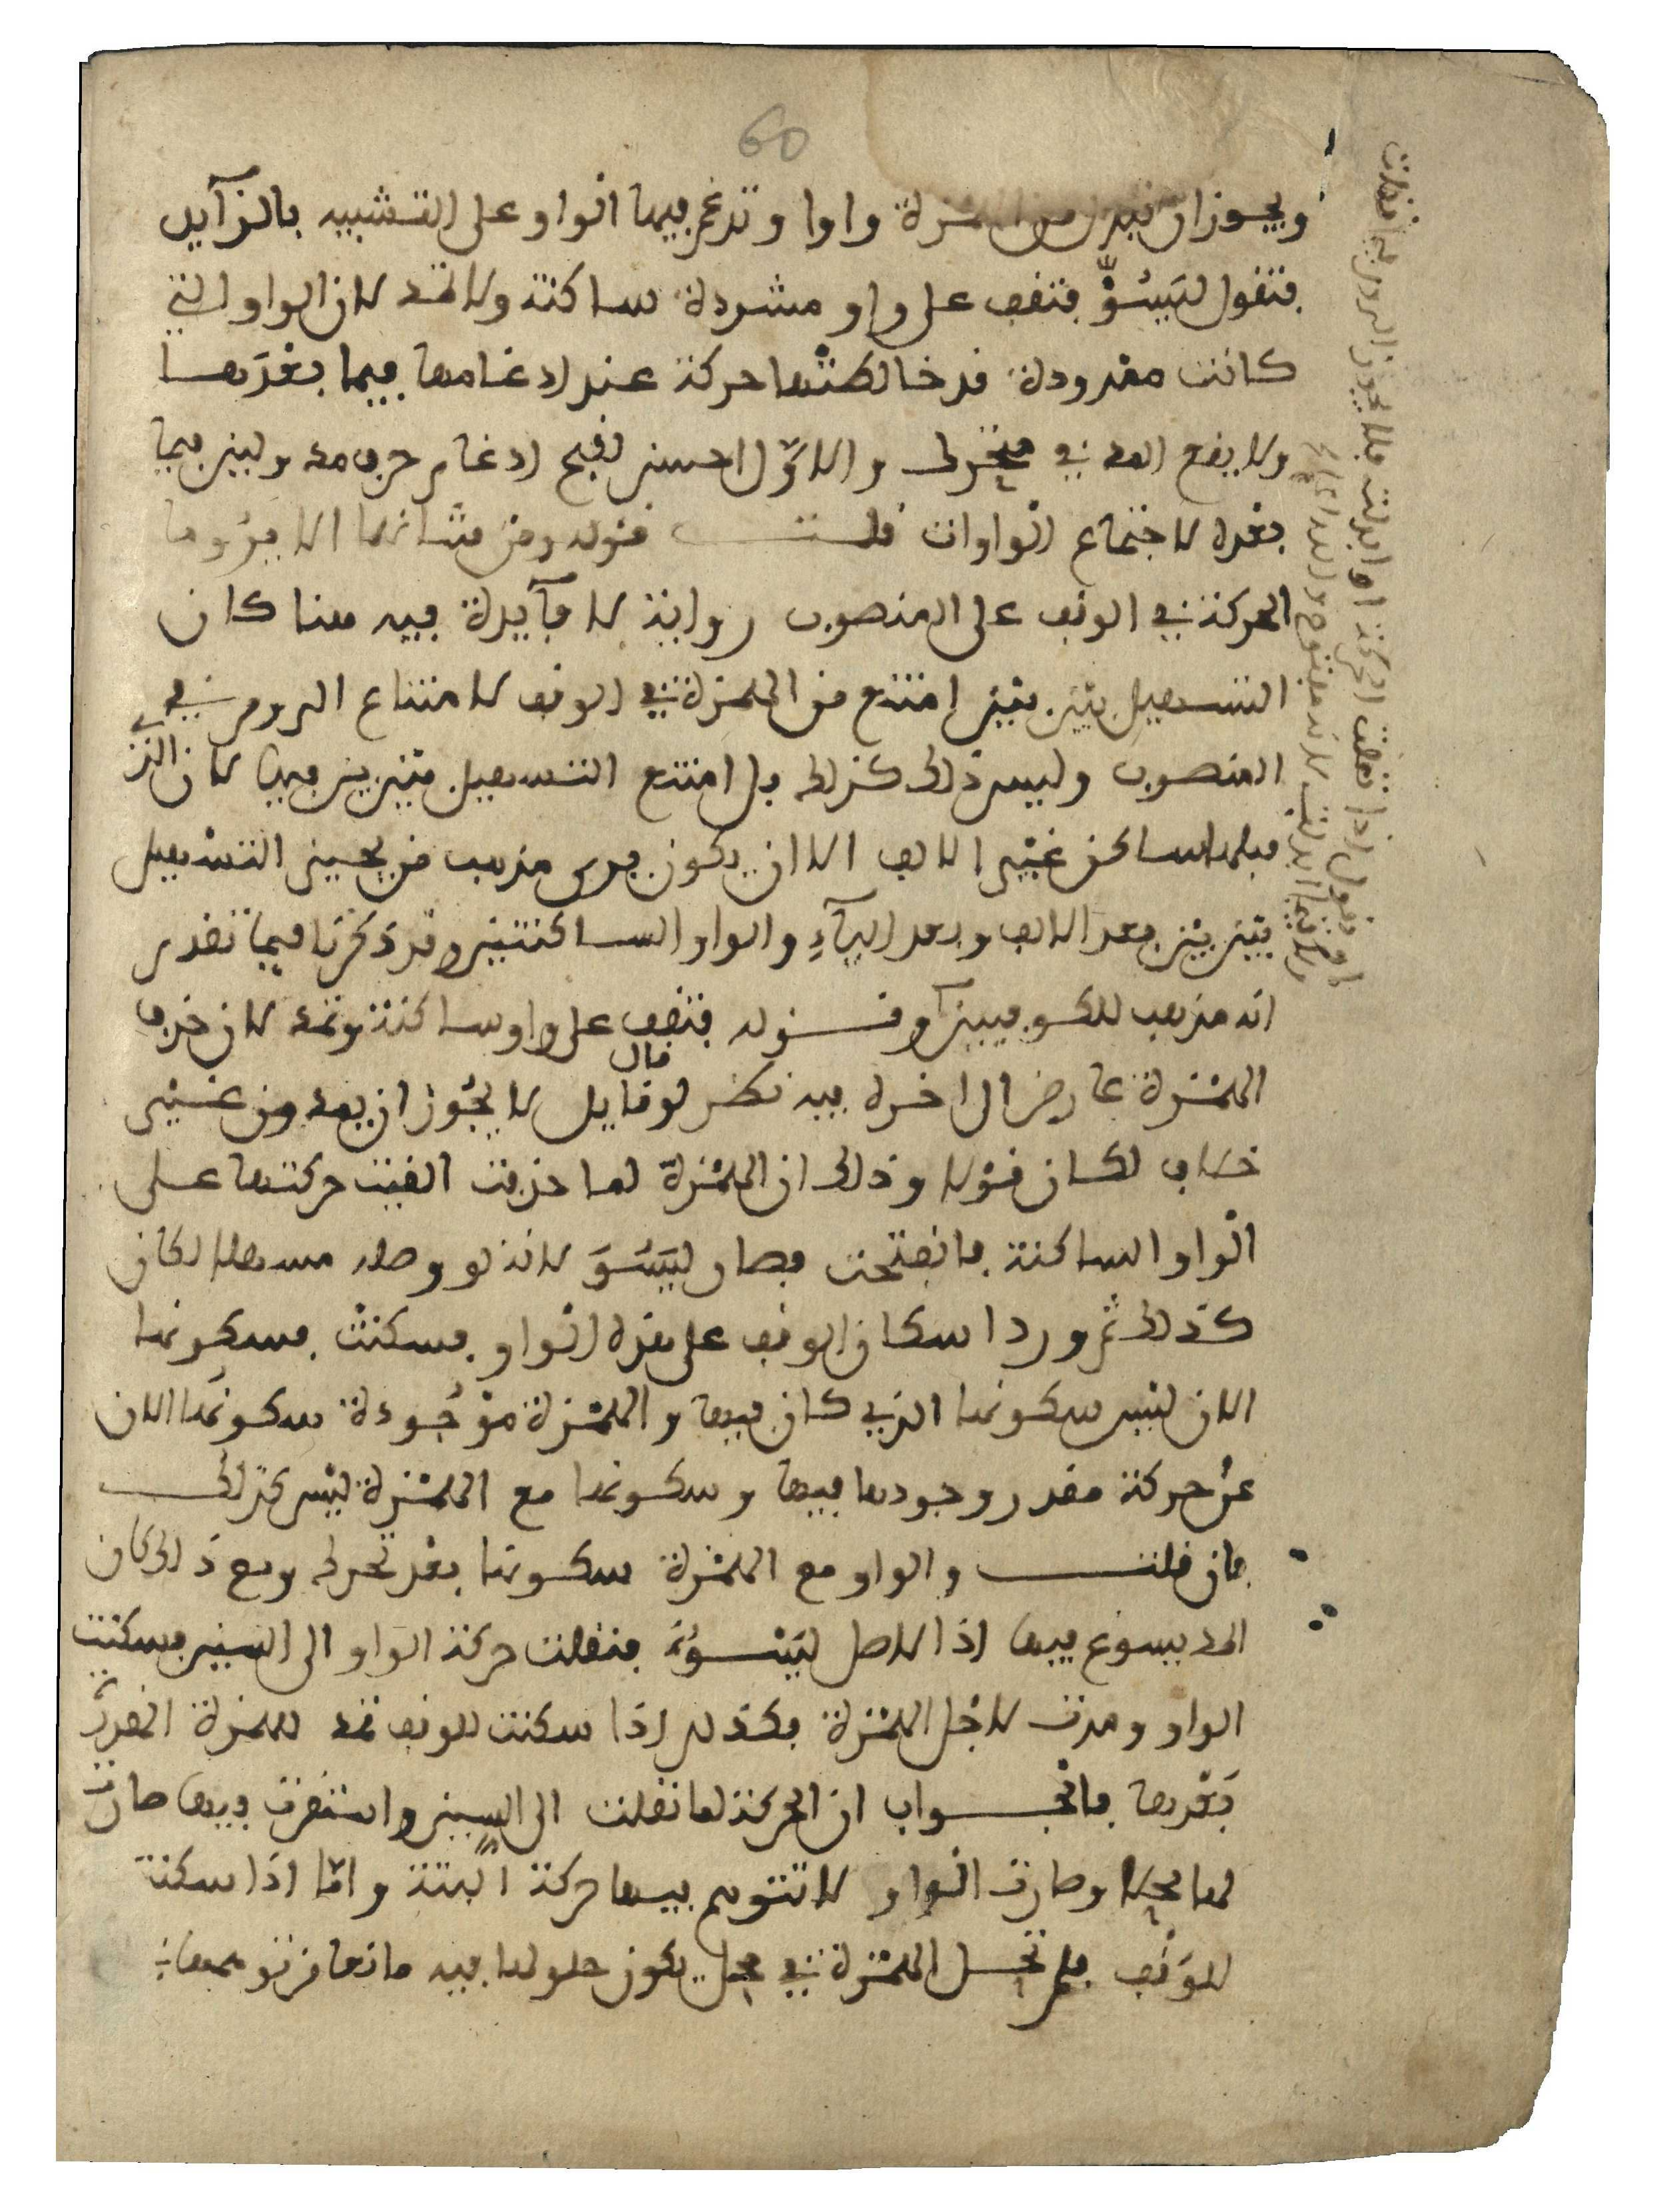 60
ويجوز ان تبدل من الهمزة واوا وتدغم فيها الواو على التشبيه بالزآيد
فتقول ليسُوّ فتقف على واو مشددة ساكنة ولا تمد لان الواو التي
كانت ممدودة قد خالطتها حركة عند ادغامها فيما بعدها
ولا يقع المد في متحرك والاوّل احسن لقبح ادغام حرف مد ولين فيما
بعده لاجتماع الواوات قلت قوله ومن شانها الا يروما
الحركة في الوقف على المنصوب رواية لا فآيدة فيه هنا كان
التسهيل بين بين امتنع من الهمزة في الوقف لامتناع الروم في
المنصوب وليس ذلك كذلك بل امتنع التسهيل بين بين فيها لان الذي
قبلها ساكن غير الالف الا ان يكون يرى مذهب من يجيز التسهيل
بين بين بعد الالف وبعد اليآء والواو الساكنتين وقد ذكرنا فيما تقدم
انه مذهب للكوفيين وقوله فتقف على واو ساكنة وتمد لان حذف
الهمزة عارض الى اخره فيه نظر لو قال قايل لا يجوز ان يمد من غير
خلاف لكان قولا وذلك ان الهمزة لما حذفت القيت حركتها على
الواو الساكنة فانفتحت فصار ليَسُوَ لانه لو وصله مسهلا لكان
كذلك ثم ورد اسكان الوقف على هذه الواو فسكنت فسكونها
الان ليس سكونها الذي كان فيها والهمزة موجودة سكونها الان
عن حركة مقدر وجودها فيها وسكونها مع الهمزة ليس كذلك
فان قلت والواو مع الهمزة سكونها بعد تحرك ومع ذلك كان
المد يسوغ فيها اذ الاصل ليَسْوُءَ فنقلت حركة الواو الى السين فسكنت
الواو ومدت لاجل الهمزة فكذلك اذا سكنت للوقف تمد للهمزة المقدرة
بعدها فالجواب ان الحركة لما نقلت الى السين واستقرت فيها صارت
لها محلا وصارت الواو لا تتوهم فيها حركة البتة وامّا اذا سكنت
للوقف فلم تحل الهمزة في محل يكون حلولها فيه مانعا من توهمها في